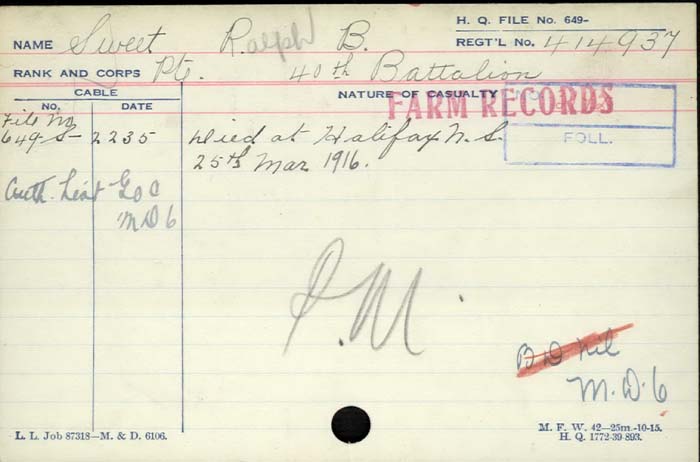 H. Q. FILE No. 649-
NAME Sweet Ralph B. REGT'L No. 414937
RANK AND CORPS Pte. 40th Battalion
CABLE NATURE OF CASUALTY
No. DATE FARM RECORDS
File No
649-S-2235 Died at Halifax N.S. FOLL.
25th Mar 1916.
Auth. List G O C
M D 6
P.M.
B D Nil
M.D. 6
L. L. Job 87318—M. & D. 6106. M. F. W. 42—25m.-10-15.
H. Q. 1772-39-893.